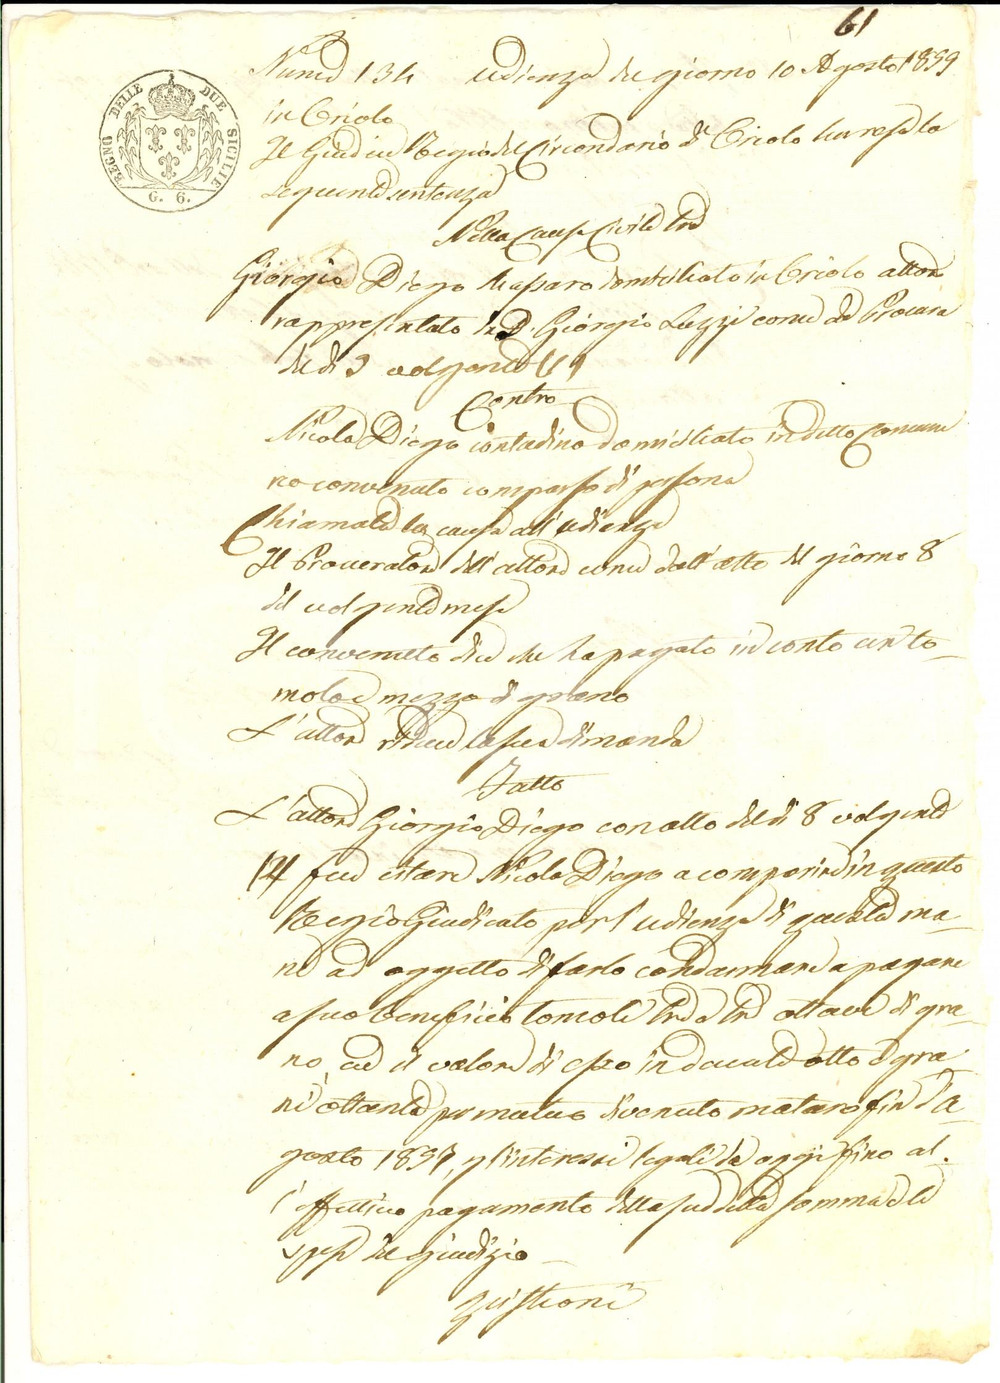 61
REGNO DELLE DUE SICILIE
G. 6.
Numo 134 udienza del giorno 10 Agosto 1839
in Oriolo
Il Giudice Regio del Circondario di Oriolo ha reso la
seguente sentenza
Nella Causa Civile tra
Giorgio Diego Massaro domiciliato in Oriolo attore
rappresentato da D. Giorgio Luzzi come da Procura
del dì 9 volgente
Contro
Nicola Diego contadino domiciliato in detto Comune
reo convenuto comparso di persona
Chiamata la causa all'udienza
Il Procuratore dell'attore come dall'atto del giorno 8
del volgente mese
Il convenuto dice che ha pagato in conto un to-
molo e mezzo di grano
L'attore riduce la sua dimanda
Fatto
L'attore Giorgio Diego con atto del dì 8 volgente
fece citare Nicola Diego a comparire in questo
Regio Giudicato per l'udienza di questa ma-
ne ad oggetto di farlo condannare a pagare
a suo beneficio tomoli tre e tre ottave di gra-
no, ed il valore di esso in docati otto e gra-
ni ottanta per mutuo divenuto maturo fin d'A-
gosto 1837, gl'interessi legali da oggi fino al-
l'effettivo pagamento della suddetta somma e le
spese del giudizio
Quistioni